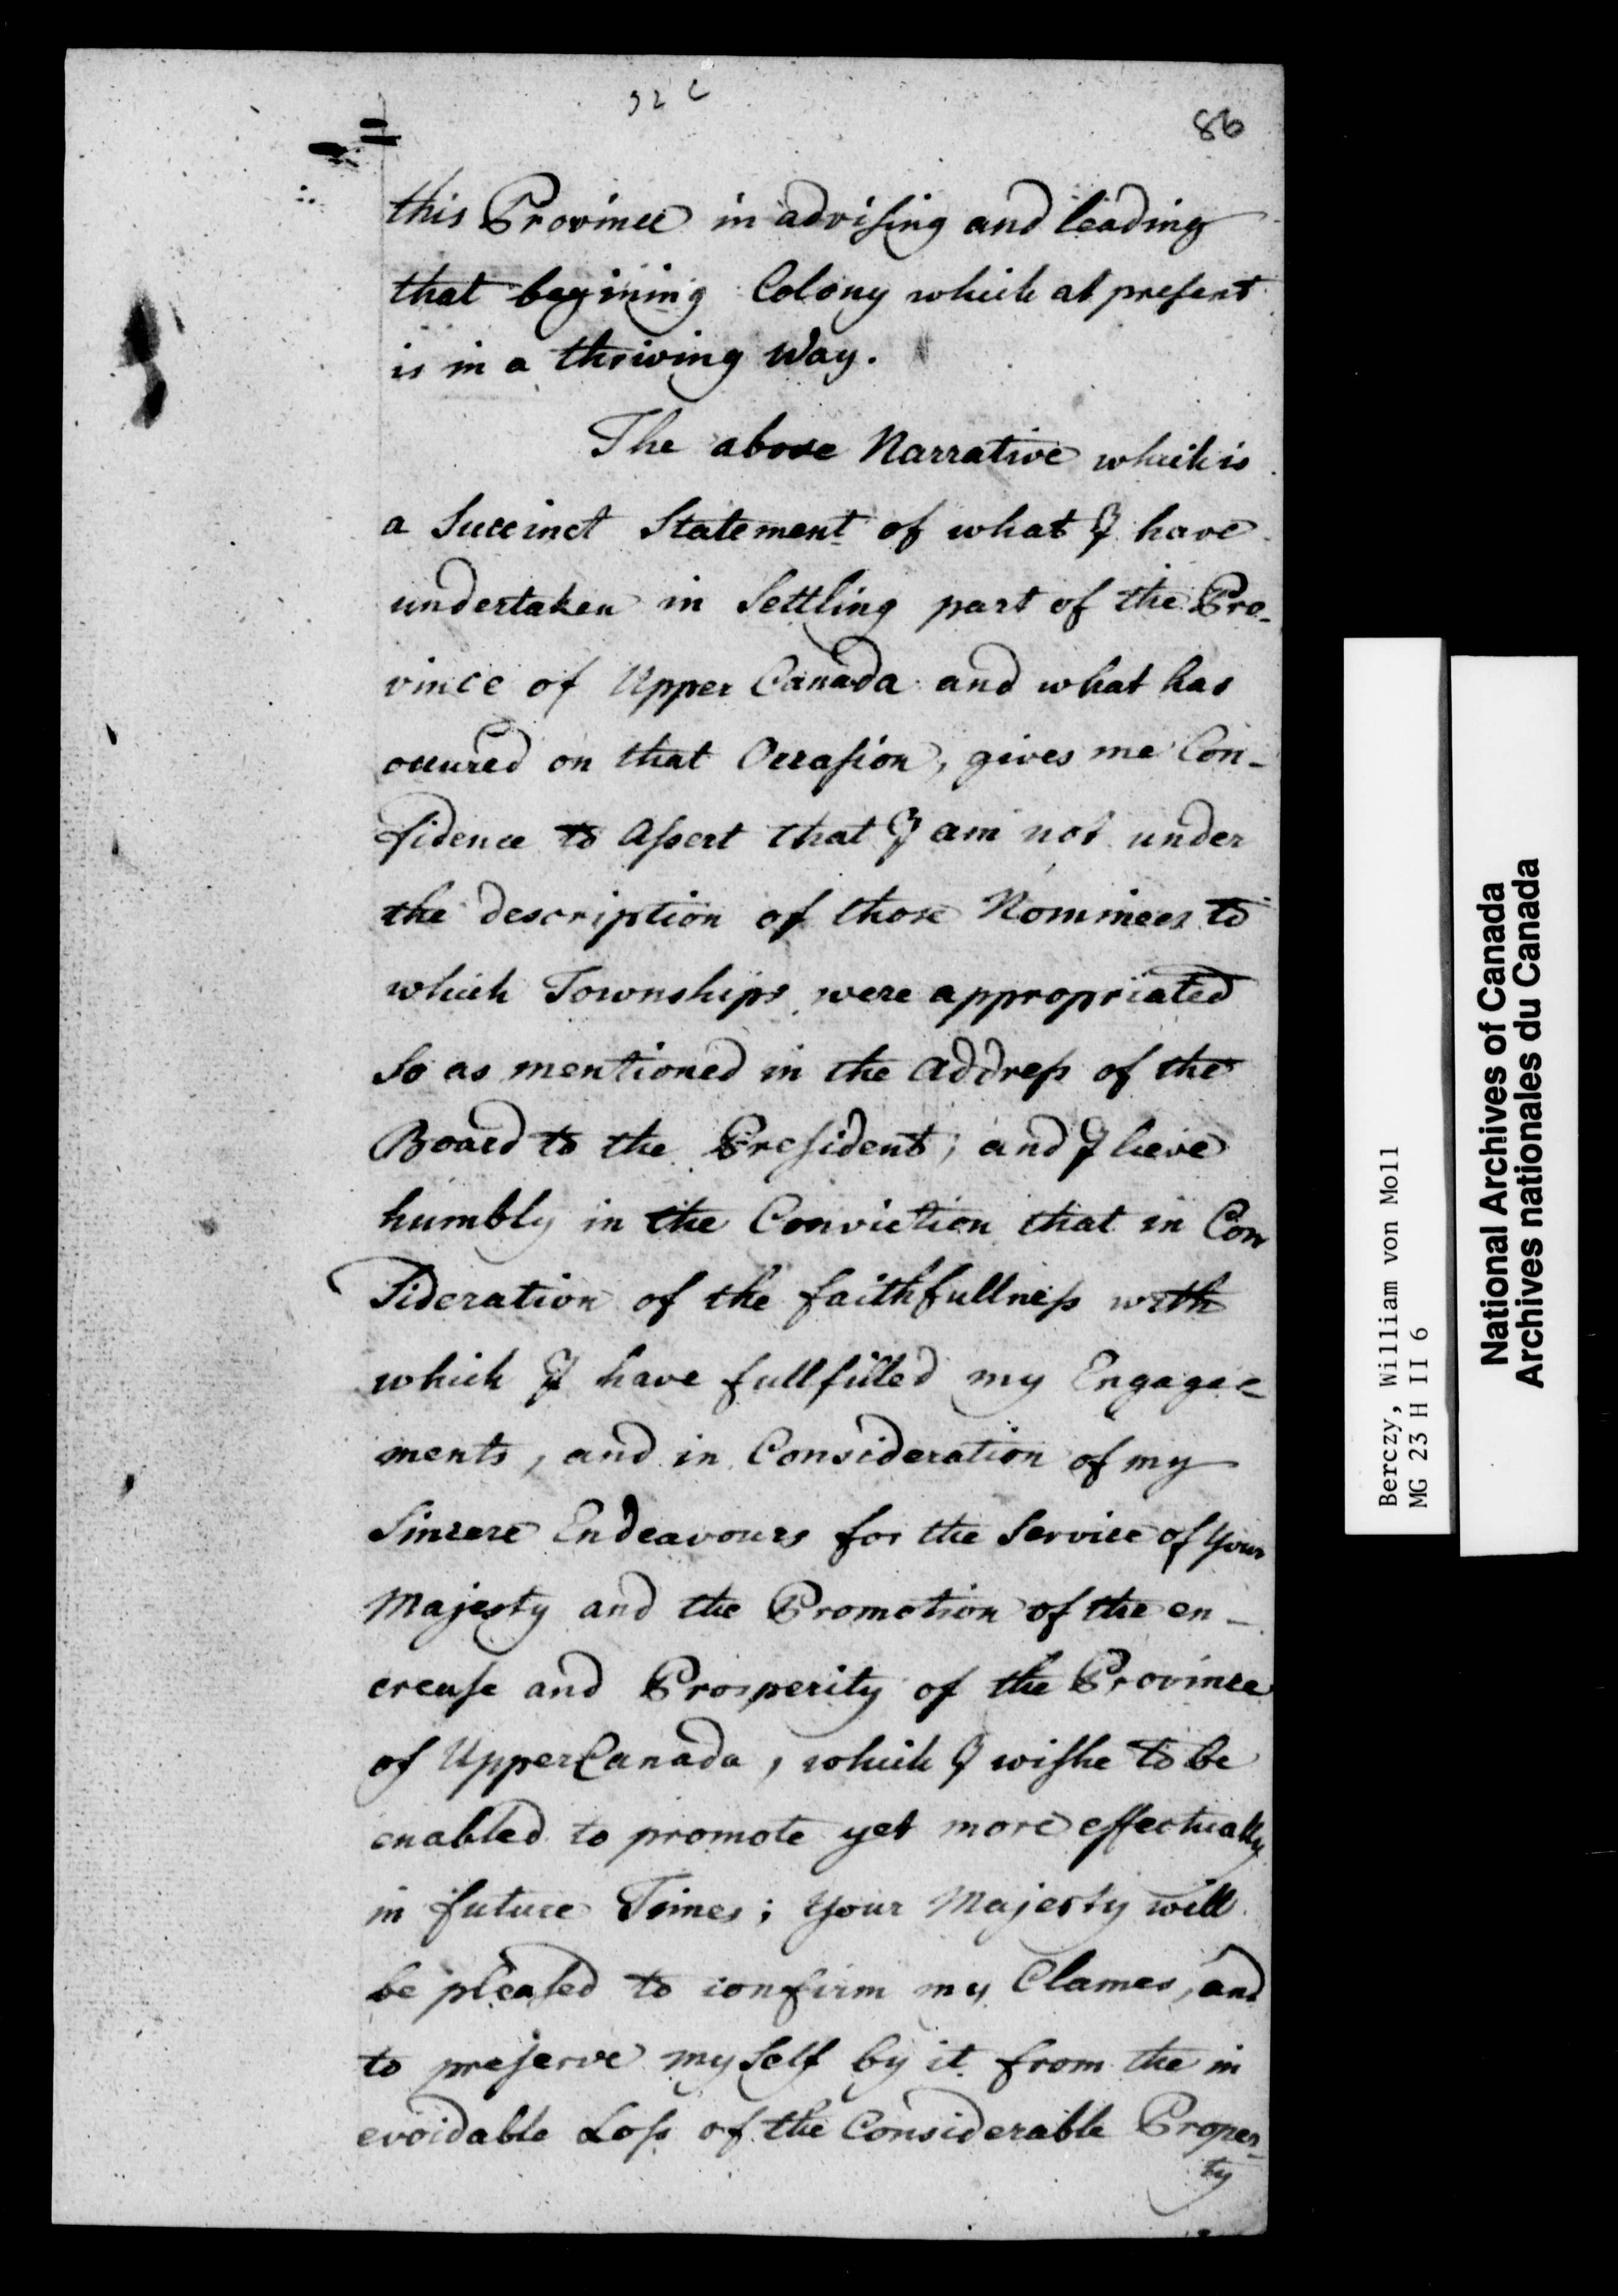 92 C
86
this Province in advising and leading
that begining Colony which at present
is in a thriving Way.
The above Narrative which is
a Succinct Statement of what I have
undertaken in Settling part of the Pro-
vince of Upper Canada and what has
occured on that Occasion, gives me Con-
fidence to Assert that I am not under
the description of those Nominees to
which Townships were appropriated
So as mentioned in the Address of the
Board to the President; and I lieve
humbly in the Conviction that in Con
Sideration of the faithfullness with
which I have fullfilled my Engage-
ments, and in Consideration of my
Sincere Endeavours for the Service of Your
Majesty and the Promotion of the en-
crease and Prosperity of the Province
of Upper Canada, which I wishe to be
enabled to promote yet more effectually
in future Times; Your Majesty will
be pleased to confirm my Clames, and
to preserve my Self by it from the in
evoidable Loss of the Considerable Proper-
ty
Berczy, William von Moll
MG 23 H II 6
National Archives of Canada
Archives nationales du Canada